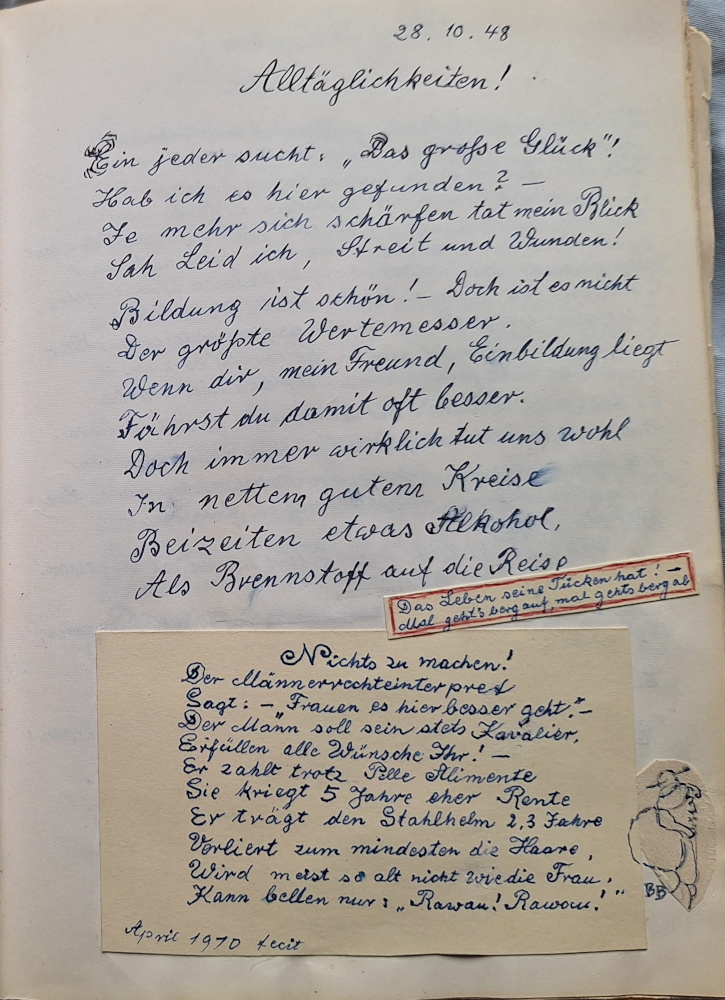 28. 10. 48
Alltäglichkeiten!
Ein jeder sucht: „Das große Glück"!
Hab ich es hier gefunden? —
Je mehr sich schärfen tat mein Blick
Sah Leid ich, Streit und Wunden!
Bildung ist schön! — Doch ist es nicht
Der größte Wertemesser.
Wenn dir, mein Freund, Einbildung liegt
Fährst du damit oft besser.
Doch immer wirklich tut uns wohl
In nettem gutem Kreise
Beizeiten etwas Alkohol,
Als Brennstoff auf die Reise
Das Leben seine Tücken hat! —
Mal geht's bergauf, mal gehts bergab
Nichts zu machen!
Der Männerrechteinterpret
Sagt: — Frauen es hier besser geht." —
Der Mann soll sein stets Kavalier,
Erfüllen alle Wünsche Ihr! —
Er zahlt trotz Pille Alimente
Sie kriegt 5 Jahre eher Rente
Er trägt den Stahlhelm 2,3 Jahre
Verliert zum mindesten die Haare,
Wird meist so alt nicht wie die Frau,
Kann bellen nur: „Rawau! Rawau!"
BB
April 1970 fecit